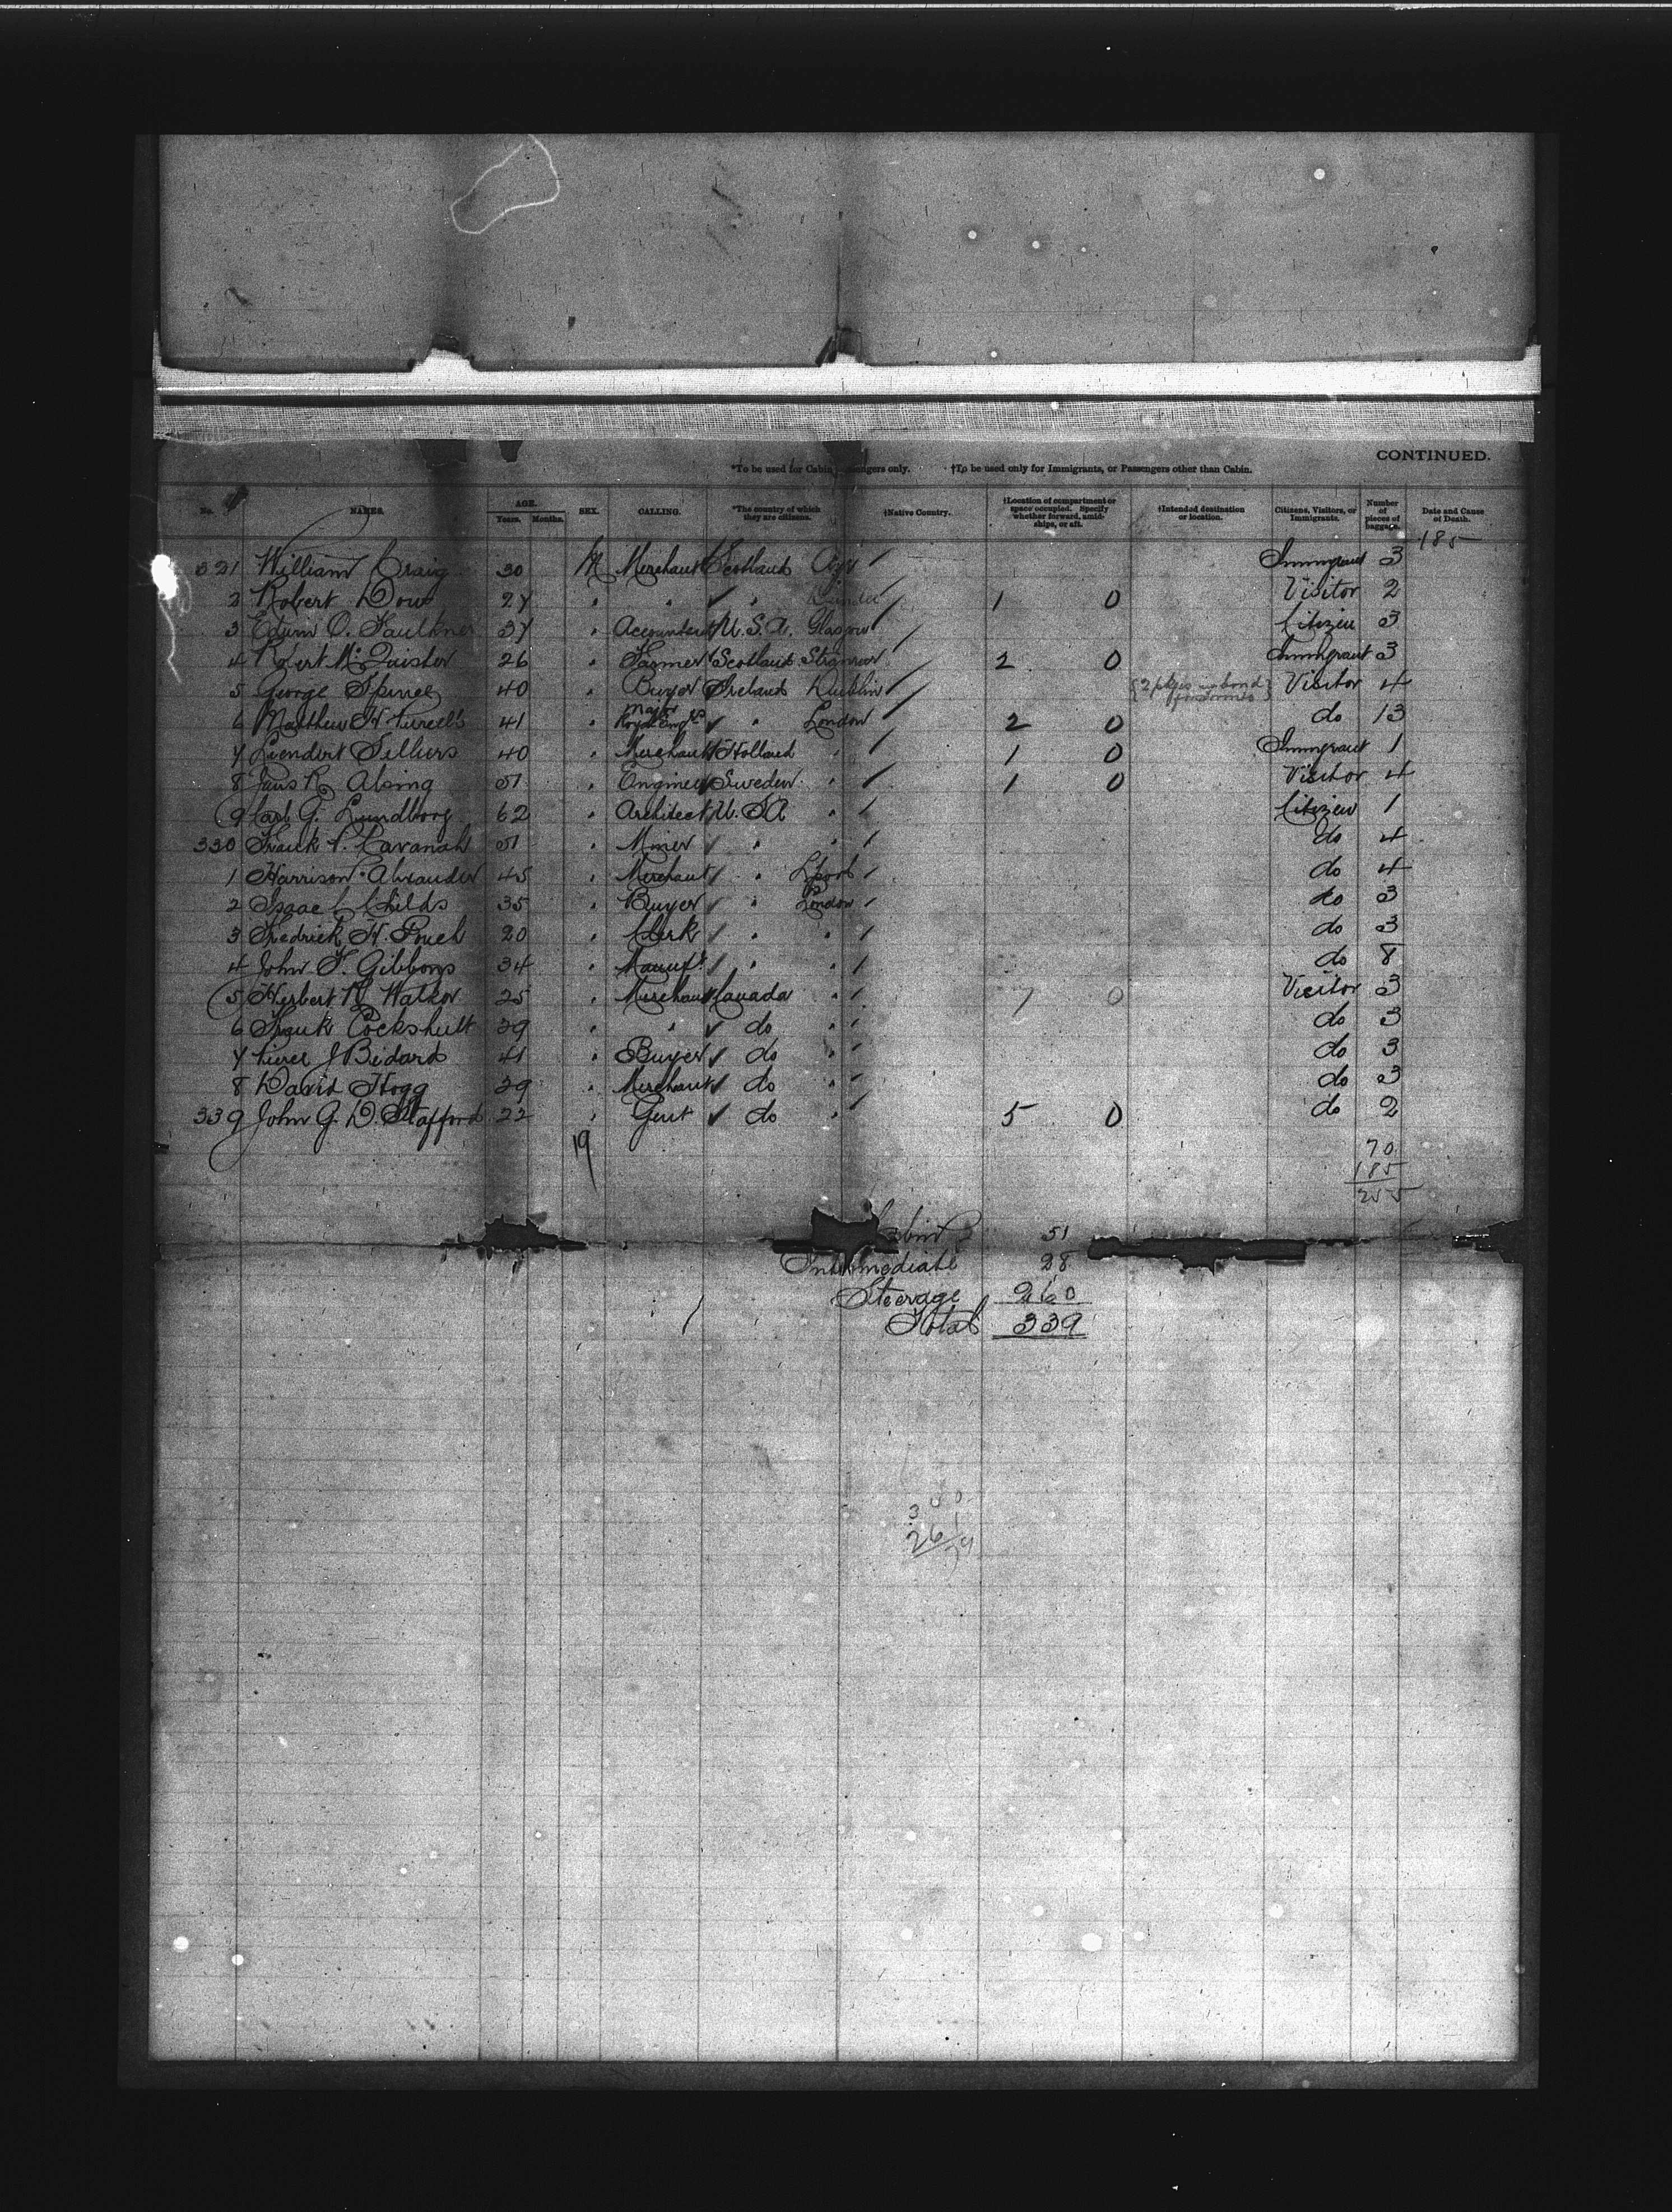 CONTINUED.
*To be used for Cabin Passengers only. †To be used only for Immigrants, or Passengers other than Cabin.
No. NAMES. AGE. Years. Months. SEX. CALLING. *The country of which they are citizens. †Native Country. †Location of compartment or space occupied. Specify whether forward, amidships, or aft. †Intended destination or location. Citizens, Visitors, or Immigrants. Number of pieces of baggage. Date and Cause of Death.
185
321 William Craig 30 M Merchant Scotland Ayr Immigrant 3
2 Robert Dow 27 " " " Dundee 1 0 Visitor 2
3 Edwin O. Faulkner 37 " Accountant U.S.A. Glasgow Citizen 3
4 Robert McQuister 26 " Farmer Scotland Stranraer 2 0 Immigrant 3
5 George Spence 40 " Buyer Ireland Dublin Visitor 4
6 Matthew H 41 " Major Royal Engrs " London 2 0 do 13
7 Liendert Sellers 40 " Merchant Holland " 1 0 Immigrant 1
8 Jans R. Alsing 51 " Engineer Sweden " 1 0 Visitor 4
9 Carl G. Lundborg 62 " Architect U.S.A " Citizen 1
330 Frank V. Cavanah 51 " Miner " " do 4
1 Harrison Alexander 45 " Merchant " Lpool do 4
2 Isaac C Childs 35 " Buyer " London do 3
3 Fredrick H. Pouch 20 " Clerk " " do 3
4 John F. Gibbons 34 " Manufr " " do 8
5 Herbert H. Walker 25 " Merchant Canada " 7 0 Visitor 3
6 Frank Cockshutt 29 " " do " do 3
7 J Bidard 41 " Buyer do " do 3
8 David Hogg 29 " Merchant do " do 3
339 John G. D. Stafford 22 " Gent do " 5 0 do 2
19
70
185
255
Cabin 51
Intermediate 28
Steerage 260
Total 339